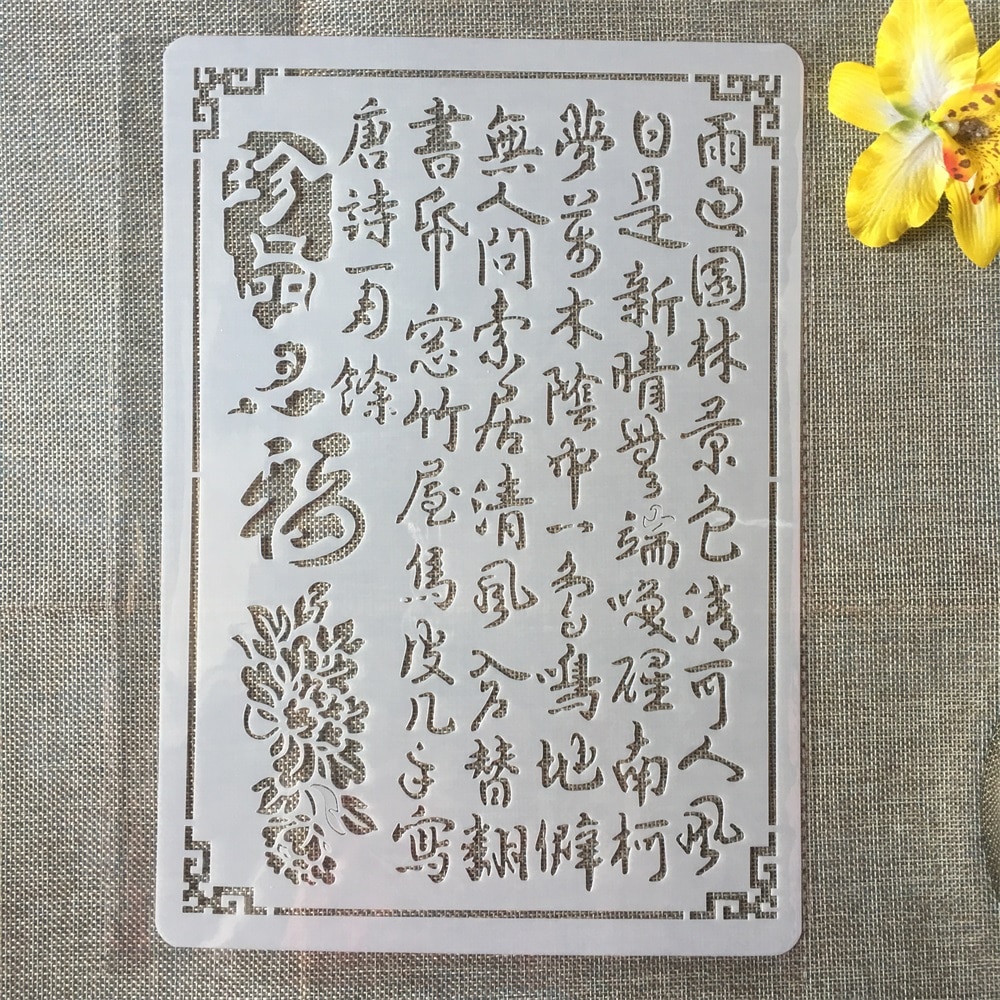 雨過園林景色清可人風
日是新晴無端喚醒南柯
夢萬木陰中一鳥鳴地僻
無人問索居清風入戶替翻
書帋窓竹屋烏皮几手寫
唐詩一月餘
珍品
忍
福